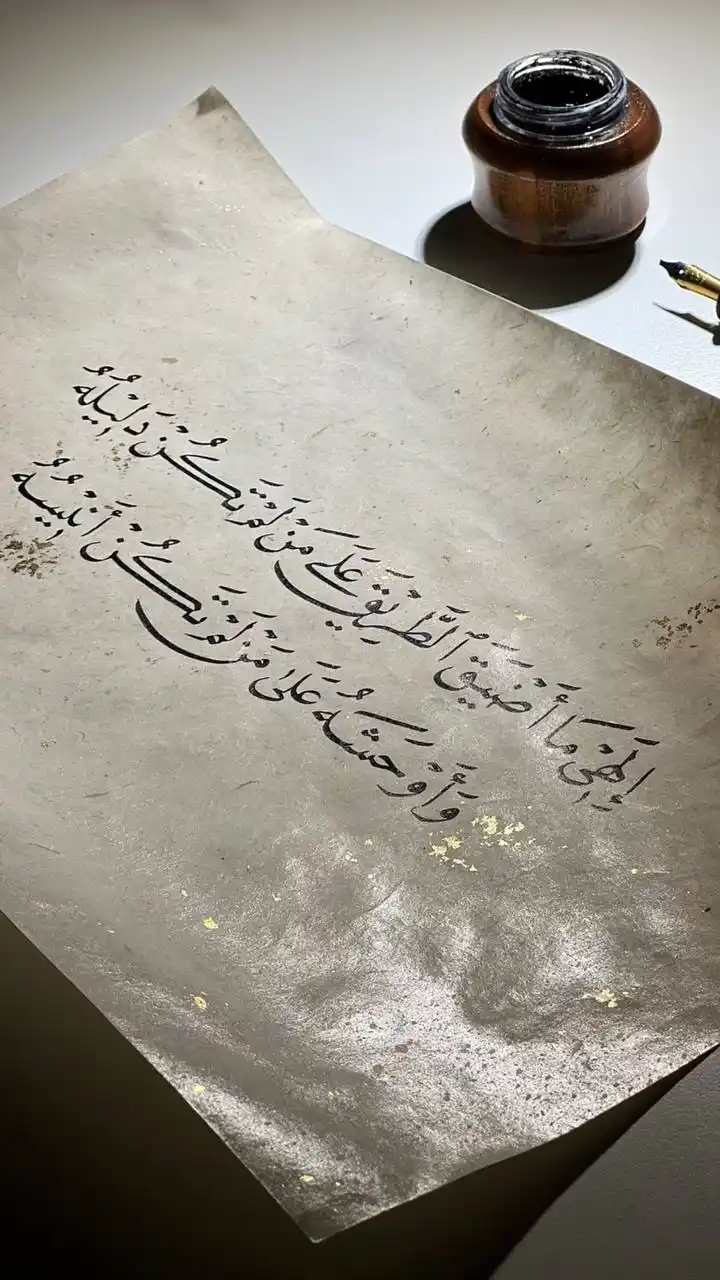 إِلَهِي مَا أَضْيَقَ ٱلطَّرِيْقَ عَلَى مَنْ لَمْ تَكُنْ دَلِيْلَهُ
وَأَوْحَشَهُ عَلَى مَنْ لَمْ تَكُنْ أَنِيْسَهُ